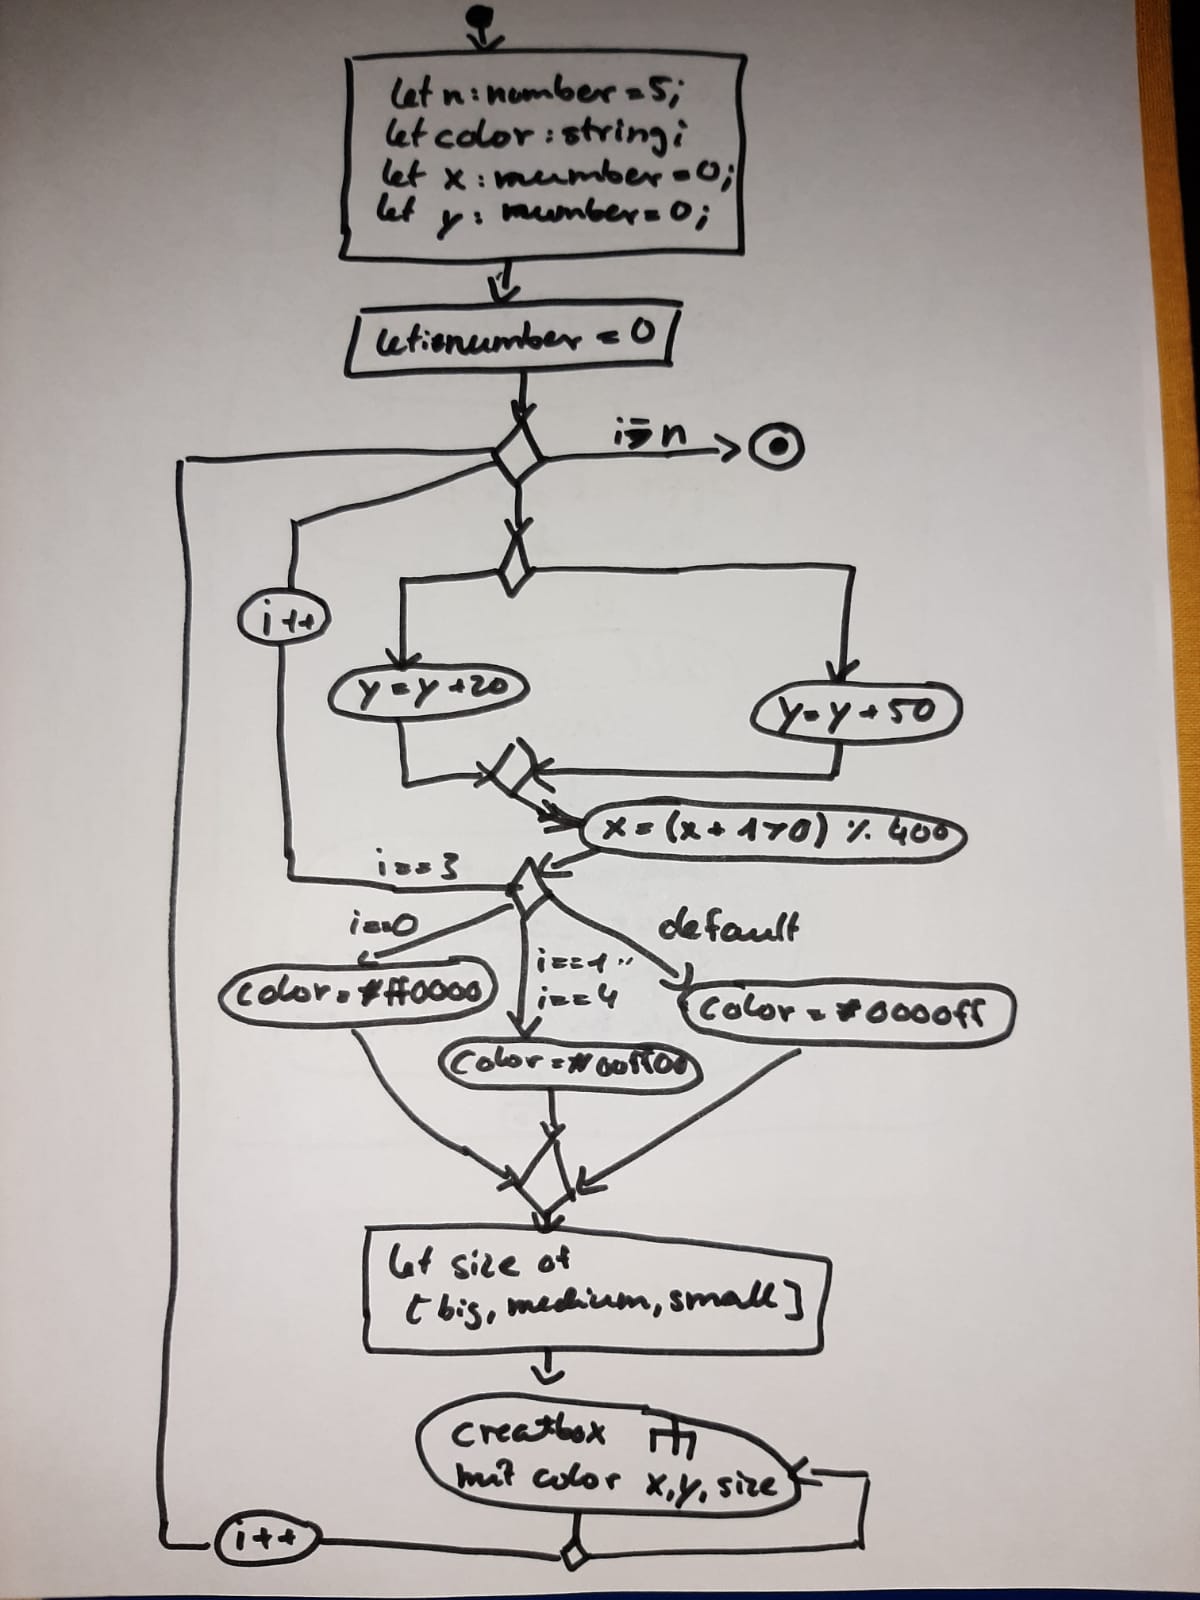 let n : number = 5;
let color : string;
let x : number = 0;
let y : number = 0;
let i : number = 0
i >= n
i++
y = y + 20
y = y + 50
x = (x + 170) % 400
i == 3
i == 0
default
i == 1
i == 4
color = #ff0000
color = #0000ff
color = #00ff00
let size of
[big, medium, small]
creatbox
mit color x, y, size
i++